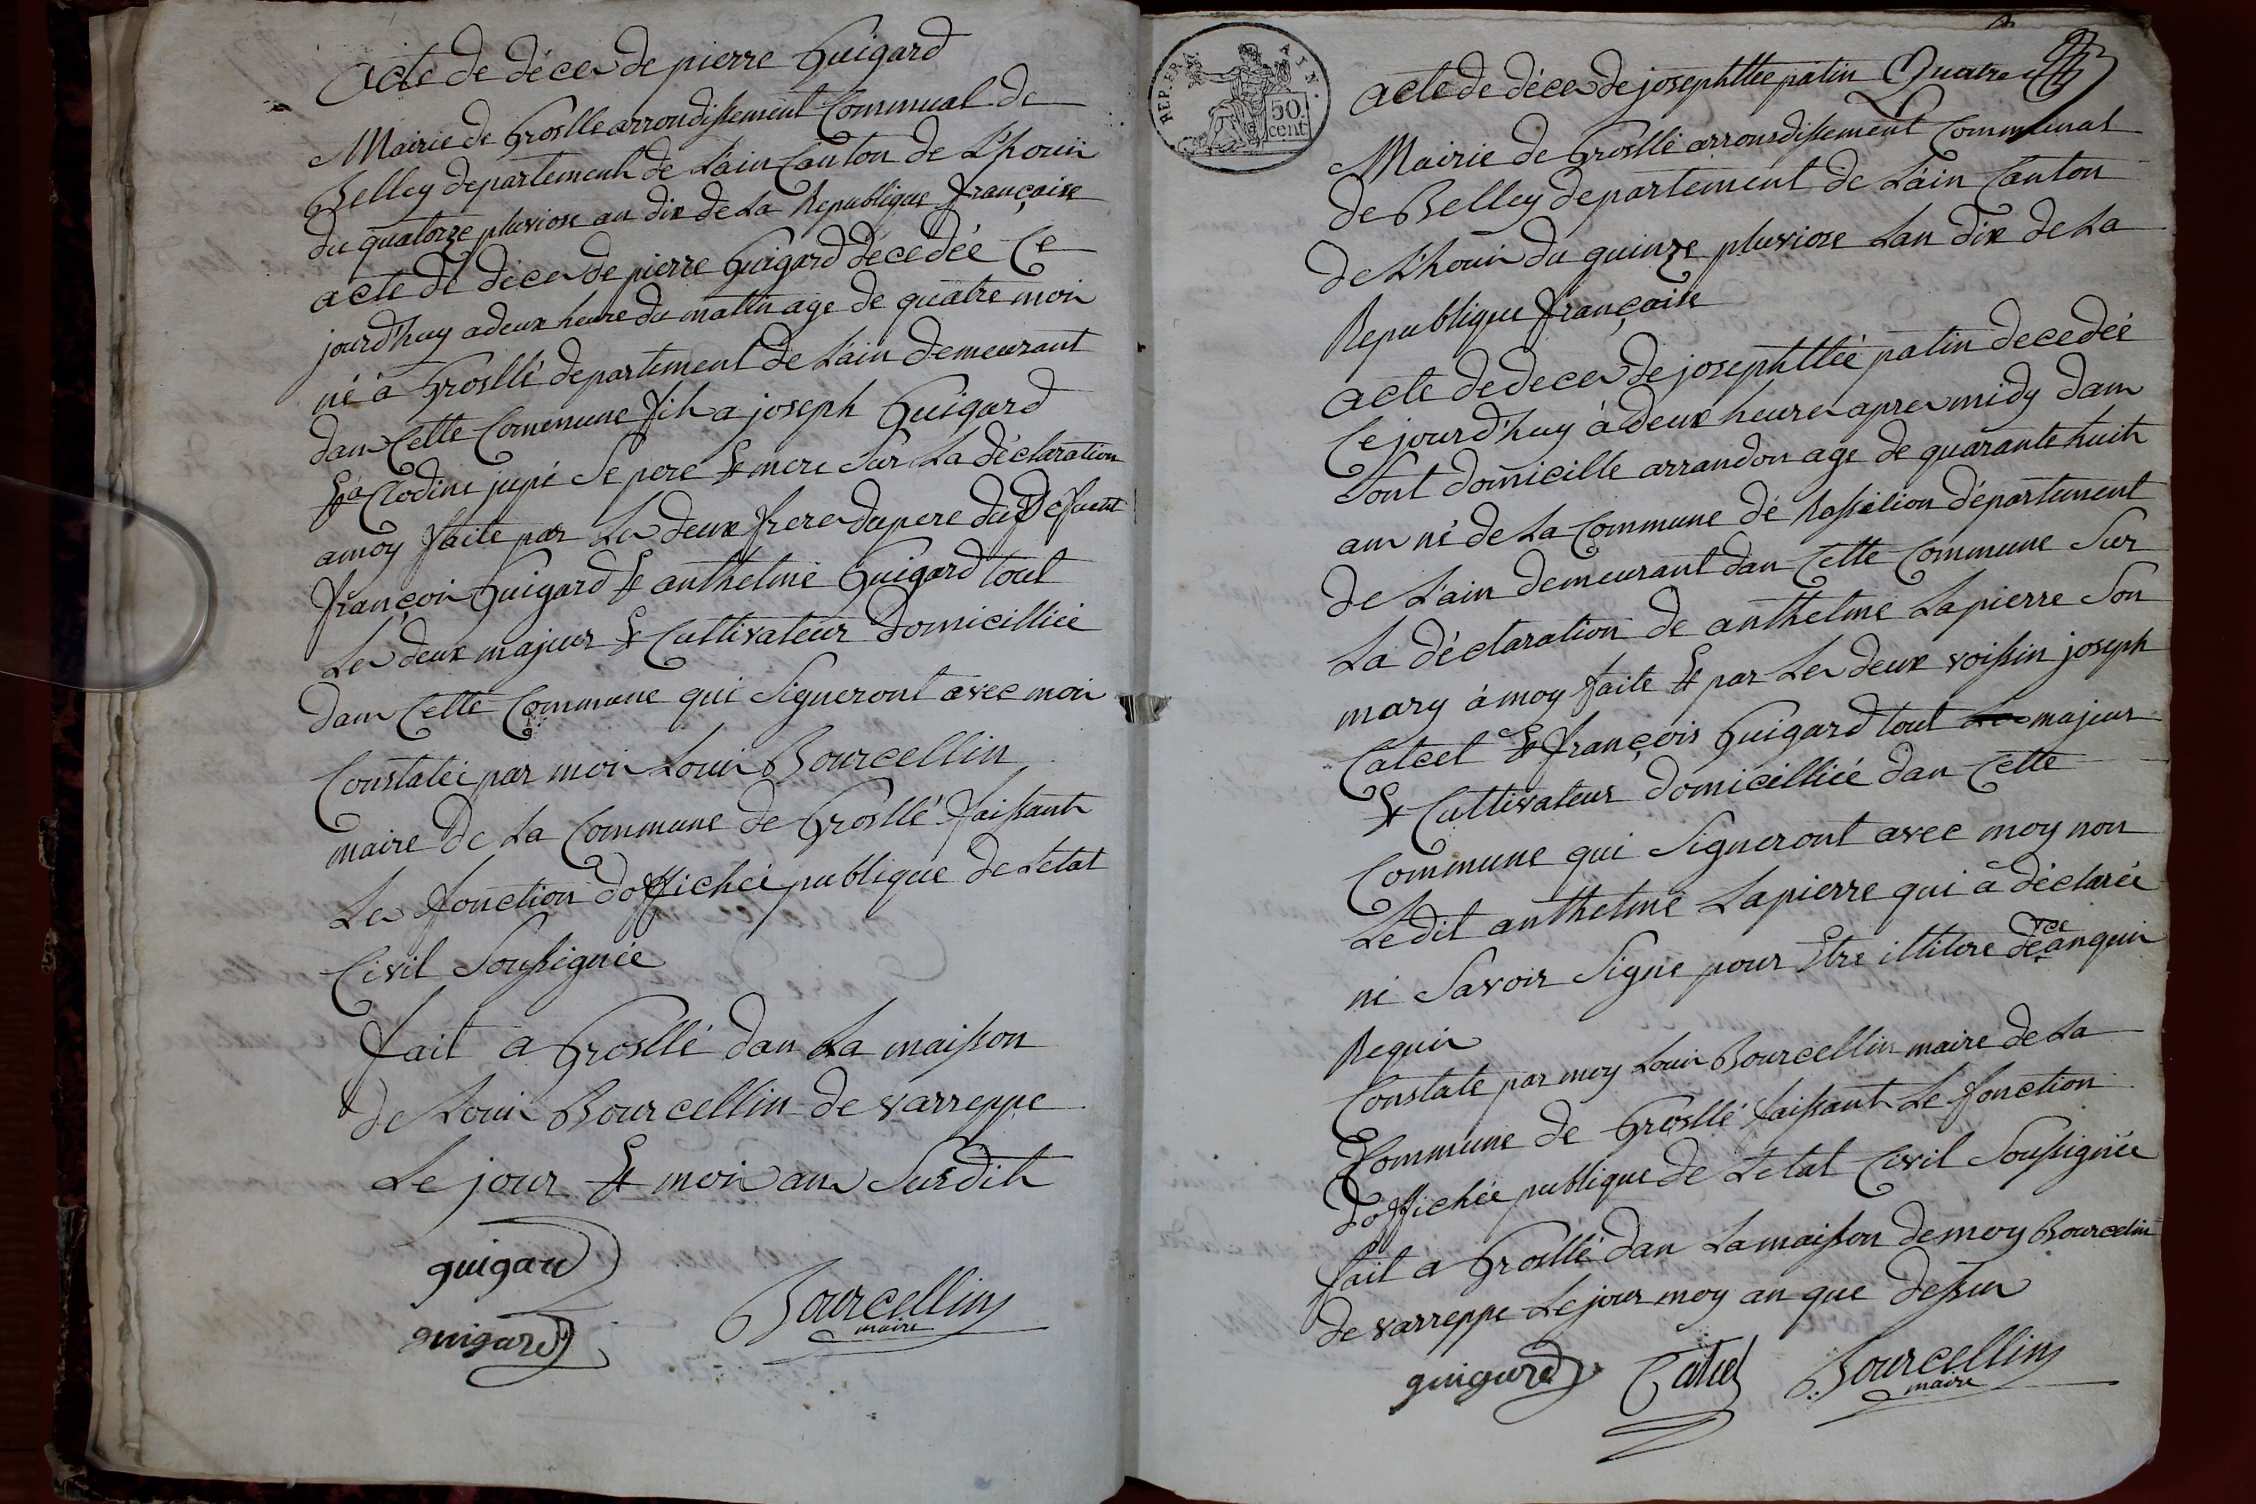 Acte de décès de pierre Guigard
Mairie de Groslle arrondissement Communal de
Belley departement de Lain Canton de Lhouis
du quatorze pluviose an dix de La Republique française
acte de décès de pierre Guigard décedée Ce
jourd'huy a deux heure du mattin age de quatre mois
né à Groslé departement de Lain demeurant
dans Cette Commune fils a joseph Guigard
Et a Clodine jupé Se pere Et mere Sur La déclaration
a moy faite par Les deux freres du pere du defunt
françois Guigard Et anthelme Guigard tout
Les deux majeur Et Cultivateur domicilliée
dans Cette Commune qui Signeront avec mois
Constatée par mois Louis Bourcellin
maire de La Commune de Groslé faissant
Les fonction dofficheé publique de Letat
Civil Soussignée
fait a Groslé dans La maisson
de Louis Bourcellin de varreppe
Le jour Et mois ans Surdit
guigard
guigard
Bourcellin
maire
REP. FRA. AIN.
50
cent
acte de décès de josephttee patin Quatre
Mairie de Groslé arrondissement Communal
de Belley departement de Lain Canton
de Lhouis du quinze pluviose Lan dix de La
Republique française
acte de deces de josephttée patin decedée
Ce jourd'huy à deux heures apres midy dans
Sont domicille arrandon age de quarante huit
ans né de La Commune dé Rossilion département
de Lain demeurant dans Cette Commune Sur
La déclaration de anthelme Lapierre Son
mary à moy faite Et par Les deux voissin joseph
Catcel Et françois Guigard tout Les majeur
Et Cultivateur domicilliée dans Cette
Commune qui Signeront avec moy non
Ledit anthelme Lapierre qui a déclarée
ne Savoir Signe pour Etre illitere de ce anquis
Requis
Constate par moy Louis Bourcellin maire de La
Commune de Groslé faissant Le fonction
dofficheé publique de Letat Civil Soussignée
fait a Groslé dans La maisson de moy Bourcelin
de varreppe Le jour moy an que dessus
guigard Catcel Bourcellin
maire